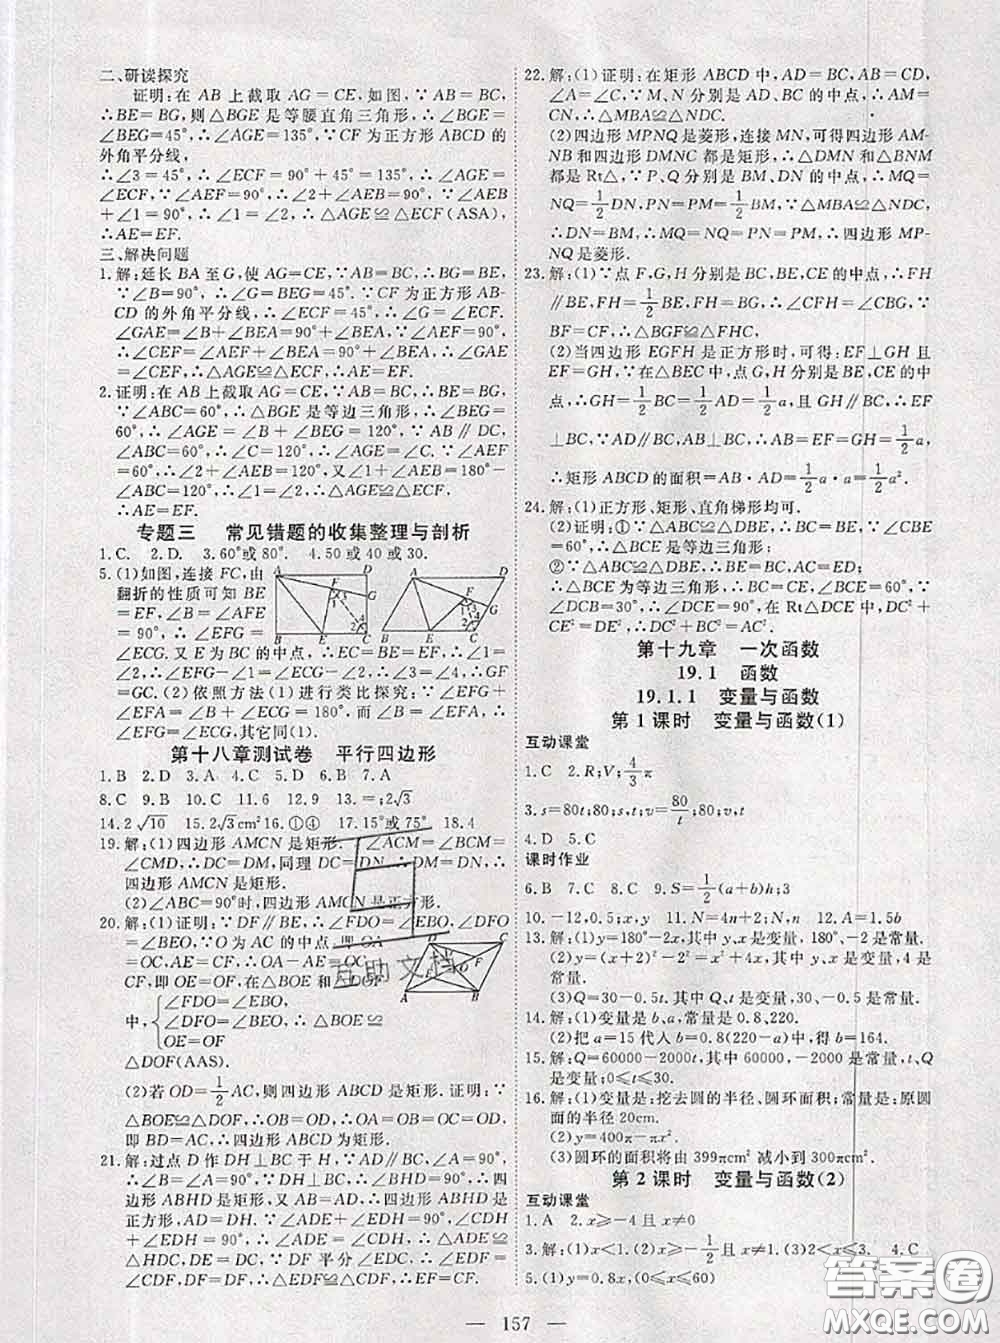 二、研读探究
证明:在 AB 上截取 AG=CE,如图,∵AB=BC,
∴BG=BE,则△BGE 是等腰直角三角形,∴∠BGE=
∠BEG=45°,∴∠AGE=135°,∵CF 为正方形 ABCD 的
外角平分线,
∴∠3=45°,∴∠ECF=90°+45°=135°,∴∠AGE=
∠ECF,∵∠AEF=90°,∴∠2+∠AEB=90°,又∠AEB
+∠1=90°,∴∠1=∠2,∴△AGE≌△ECF(ASA),
∴AE=EF.
三、解决问题
1.解:延长 BA 至 G,使 AG=CE,∵AB=BC,∴BG=BE,
∵∠B=90°,∴∠G=∠BEG=45°.∵CF 为正方形 AB-
CD 的外角平分线,∴∠ECF=45°,∴∠G=∠ECF.
∠GAE=∠B+∠AEB=90°+∠AEB,
∠CEF=∠AEF+∠AEB=90°+∠AEB,∴∠GAE
=∠CEF,∴△AGE≌△ECF,∴AE=EF.
2.证明:在 AB 上截取 AG=CE,∵AB=BC,∴BE=BG.
∵∠ABC=60°,∴△BGE 是等边三角形,∴∠BGE=
60°,∴∠AGE=∠B+∠BGE=120°,∵AB∥DC,
∠ABC=60°,∴∠C=120°,∴∠AGE=∠C.∵∠AEF=
∠ABC=60°,∴∠1+∠AEB=120°,又∠1+∠AEF=180°-
∠ABC=120°,∴∠1=∠2,∴△AGE≌△ECE,
∴AE=EF.
专题三 常见错题的收集整理与剖析
1.C. 2.D. 3.60°或 80°. 4.50 或 40 或 30.
5.(1)如图,连接 FC,由
翻折的性质可知 BE
=EF,∴∠B=∠AFE
=90°,∴∠EFG=
∠ECG,又 E 为 BC 的中点,
∴BE=CE,∴EF=EC,∴∠1=∠2,∴∠3=∠4,∴GF=
GC.(2)依照方法(1)进行类比探究:∠B=∠EFA,
∠B+∠ECG=180°,∴∠AFE+∠ECG=180°,而
∠AFE+∠EFG=180°,∴∠EFG=∠ECG,∴∠EFG
=∠ECG,其它同(1).
第十八章测试卷 平行四边形
1.B 2.D 3.A 4.C 5.D 6.B 7.A
8.C 9.B 10.C 11.6 12.9 13.=;2√3
14.2√10 15.2√3cm² 16.①④ 17.15°或 75° 18.4
19.解:(1)四边形 AMCN 是矩形.∵∠ACM=∠BCM=
∠CMD,∴DC=DM,同理 DC=DN,∴DM=DN,∴四
边形 AMCN 是矩形.
(2)∠ACB=90°时,四边形 AMCN 是正方形.
20.解:(1)证明,∵DF∥BE,∴∠FDO=∠EBO,∠DFO
=∠BEO,∵O 为 AC 的中点,即 OA
=OC,AE=CF,∴OA-AE=OC-
CF,即 OE=OF,在△BOE 和△DOF
中,{∠FDO=∠EBO,
∠DFO=∠BEO,∴△BOE≌
OE=OF
△DOF(AAS).
(2)若 OD=1/2AC,则四边形 ABCD 是矩形.证明,∵
△BOE≌△DOF,∴OB=OD,∴OA=OB=OC=OD,
即 BD=AC,∴四边形 ABCD 为矩形.
21.解:过点 D 作 DH⊥BC 于 H,∵∠A=∠B=90°,∴四
边形 ABHD 是矩形,又∵AB=AD,∴四边形 ABHD 是
正方形,AD=DH.∵∠ADE+∠EDH=∠CDH+
∠EDH=90°,∴∠ADE=∠CDH,∴△ADE≌△CDH,
∴∠AED=∠DCH.∵DF 平分∠EDC,∴∠EDF=
22.解:(1)证明:在矩形 ABCD 中,AD=BC,AB=CD,
∠A=∠C,∵M、N 分别是 AD、BC 的中点,∴AM=
CN,∴△MBA≌△NDC.
(2)四边形 MPNQ 是菱形,连接 MN,可得四边形 AM-
NB 和四边形 DMNC 都是矩形,∴△MDN 和△BNM
都是 Rt△,∵P、Q 分别是 BM、DN 的中点,∴MQ=
NQ=1/2DN,PN=PM=1/2BM,∵△MBA≌△NDC,
∴DN=BM,∴MQ=NQ=PN=PM,∴四边形 MP-
NQ 是菱形.
23.解:(1)∵点 F,G,H 分别是 BC,BE,CE 的中点,∴FH
∥BE,FH=1/2BE,FH=BG.∴∠CFH=∠CBG,∵
BF=CF,∴△BGF≌△FHC,
(2)当四边形 EGFH 是正方形时,可得:EF⊥GH 且
EF=GH,∵在△BEC 中,点 G,H 分别是 BE,CE 的中
点,∴GH=1/2BC=1/2AD=1/2a,且 GH∥BC,∴EF
⊥BC,∵AD∥BC,AB⊥BC,∴AB=EF=GH=1/2a,
∴矩形 ABCD 的面积=AB·AD=1/2a·a=1/2a².
24.解:(1)正方形、矩形、直角梯形均可.
(2)证明:①∵△ABC≌△DBE,∴BC=BE,∵∠CBE
=60°,∴△BCE 是等边三角形;
②∵△ABC≌△DBE,∴BE=BC,AC=ED;
∴△BCE 为等边三角形,∴BC=CE,∠BCE=60°,∵
∠DCB=30°,∴∠DCE=90°,在 Rt△DCE 中,DC²+
CE²=DE²,∴DC²+BC²=AC².
第十九章 一次函数
19.1 函数
19.1.1 变量与函数
第 1 课时 变量与函数(1)
互动课堂
1.C 2.R;V;4/3π
3.s=80t;80;s,t;v=80/t;80;v,t
4.D 5.C
课时作业
6.B 7.C 8.C 9.S=1/2(a+b)h;3
10.-12,0.5;x,y 11.N=4n+2;N,n 12.A=1.5b
13.解:(1)y=180°-2x,其中 x、y 是变量,180°、-2 是常量.
(2)y=(x+2)²-2²=x²+4x,其中 x、y 是变量,4
是常量.
(3)Q=30-0.5t.其中 Q、t 是变量,30、-0.5 是常量.
14.解:(1)变量是 b、a,常量是 0.8、220.
(2)把 a=15 代入 b=0.8(220-a)中,得 b=164.
15.解:Q=60000-2000t,其中 60000,-2000 是常量,t、Q
是变量;0≤t≤30.
16.解:(1)变量是:挖去圆的半径、圆环面积;常量是:原圆
面的半径 20cm.
(2)y=400π-πx².
(3)圆环的面积将由 399πcm² 减小到 300πcm².
第 2 课时 变量与函数(2)
互动课堂
1.A 2.x≥-4 且 x≠0
3.解:(1)x<1.(2)x≥-1/2且 x≠1.(3)2<x≤3. 4.C
5.(1)y=0.8x,(0≤x≤60)
互助文档
答案圈
MXQE.COM
— 157 —